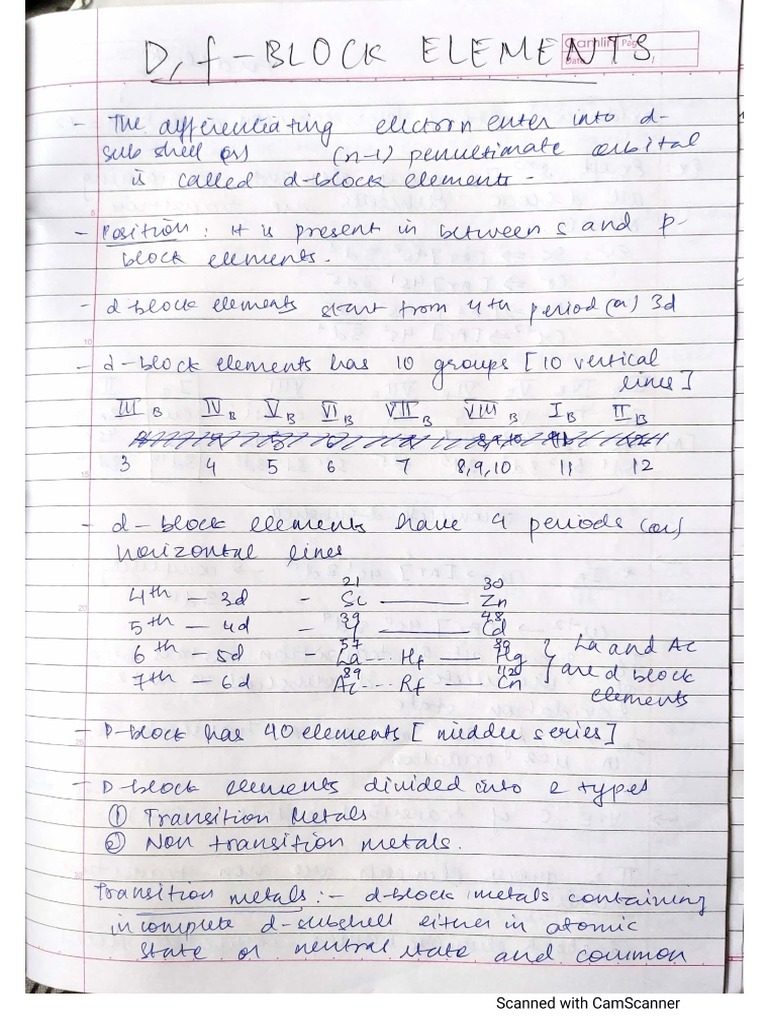 D, f - BLOCK ELEMENTS
Camlin Page
Date / /
- The differentiating electron enter into d-
sub shell (or) (n-1) penultimate orbital
is called d-block elements -
- Position : It is present in between s and p-
block elements.
- d block elements start from 4th period (or) 3d
- d-block elements has 10 groups [ 10 vertical
lines ]
III B IV B V B VI B VII B VIII B I B II B
3 4 5 6 7 8,9,10 11 12
- d-block elements have 4 periods (or)
horizontal lines
21 30
4th - 3d - Sc ——— Zn
39 48
5th - 4d - Y ——— Cd
57
6th - 5d - La... Hf —— Hg } La and Ac
89 112
7th - 6d Ac... Rf —— Cn } are d block
elements
- D-block has 40 elements [ middle series ]
- D-block elements divided into 2 types
① Transition Metals
② Non transition metals.
Transition metals :- d-block metals containing
incomplete d-subshell either in atomic
state or neutral state and common
Scanned with CamScanner